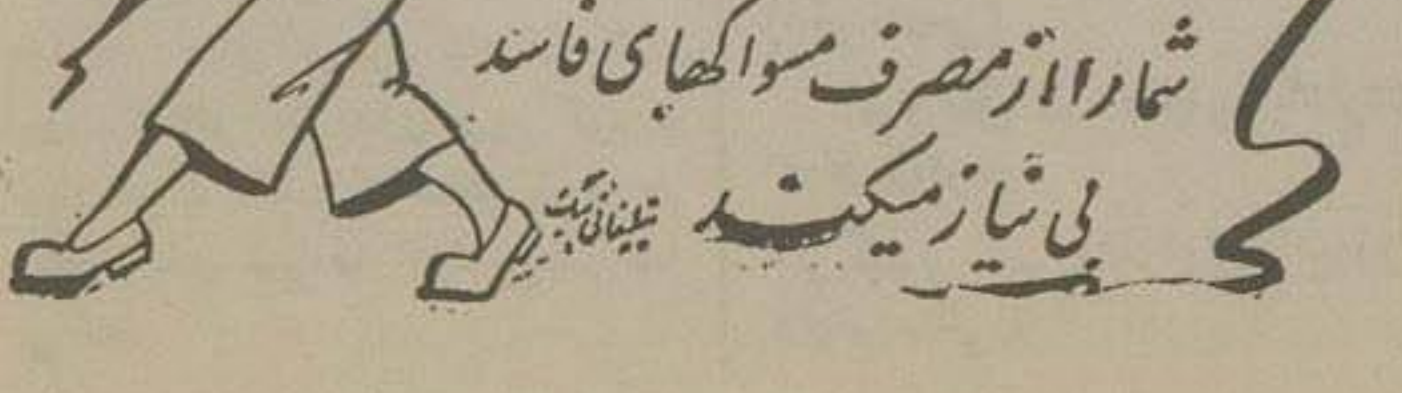 شما را از مصرف مسواکهای فاسد
بی نیاز میکند
تبلیغاتی